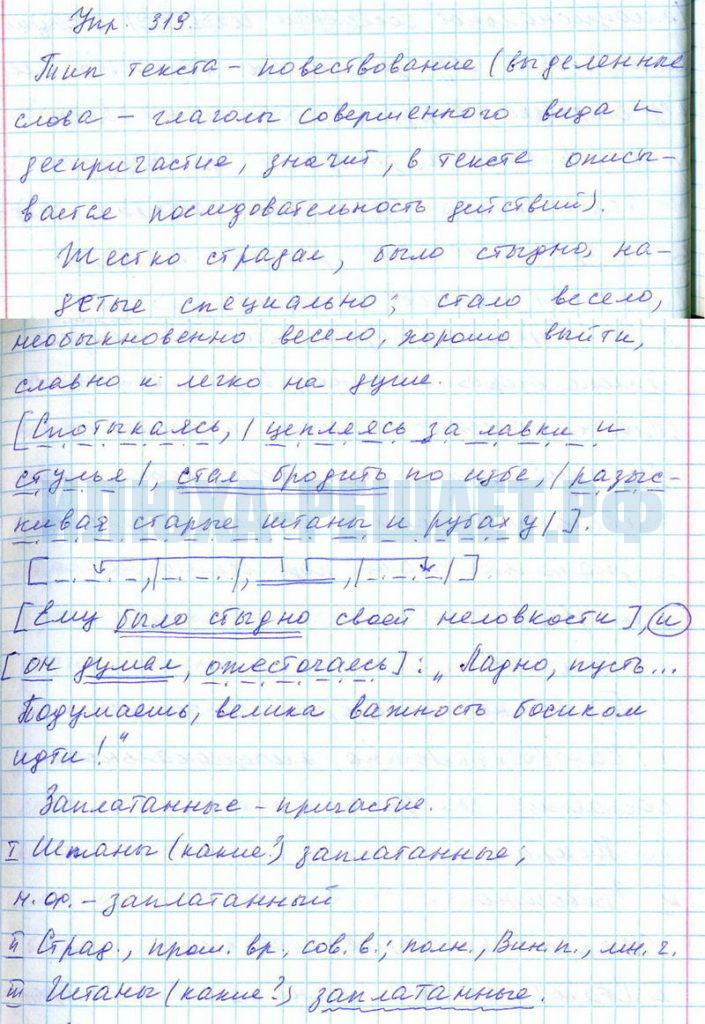 Упр. 319.
Тип текста – повествование (выделенные
слова – глаголы совершенного вида и
деепричастие, значит, в тексте описы-
вается последовательность действий).
Жестко страдал, было стыдно, на-
детые специально; стало весело,
необыкновенно весело, хорошо выйти,
славно и легко на душе.
[Спотыкаясь, | цепляясь за лавки и
стулья |, стал бродить по избе, | разыс-
кивая старые штаны и рубаху | ].
[Ему было стыдно своей неловкости], и
[он думал, ожесточаясь]: „Ладно, пусть...
Подумаешь, велика важность босиком
идти!"
Заплатанные – причастие.
I Штаны (какие?) заплатанные;
н.ф. – заплатанный
II Страд., прош. вр., сов. в.; полн., Вин. п., мн. ч.
III Штаны (какие?) заплатанные.